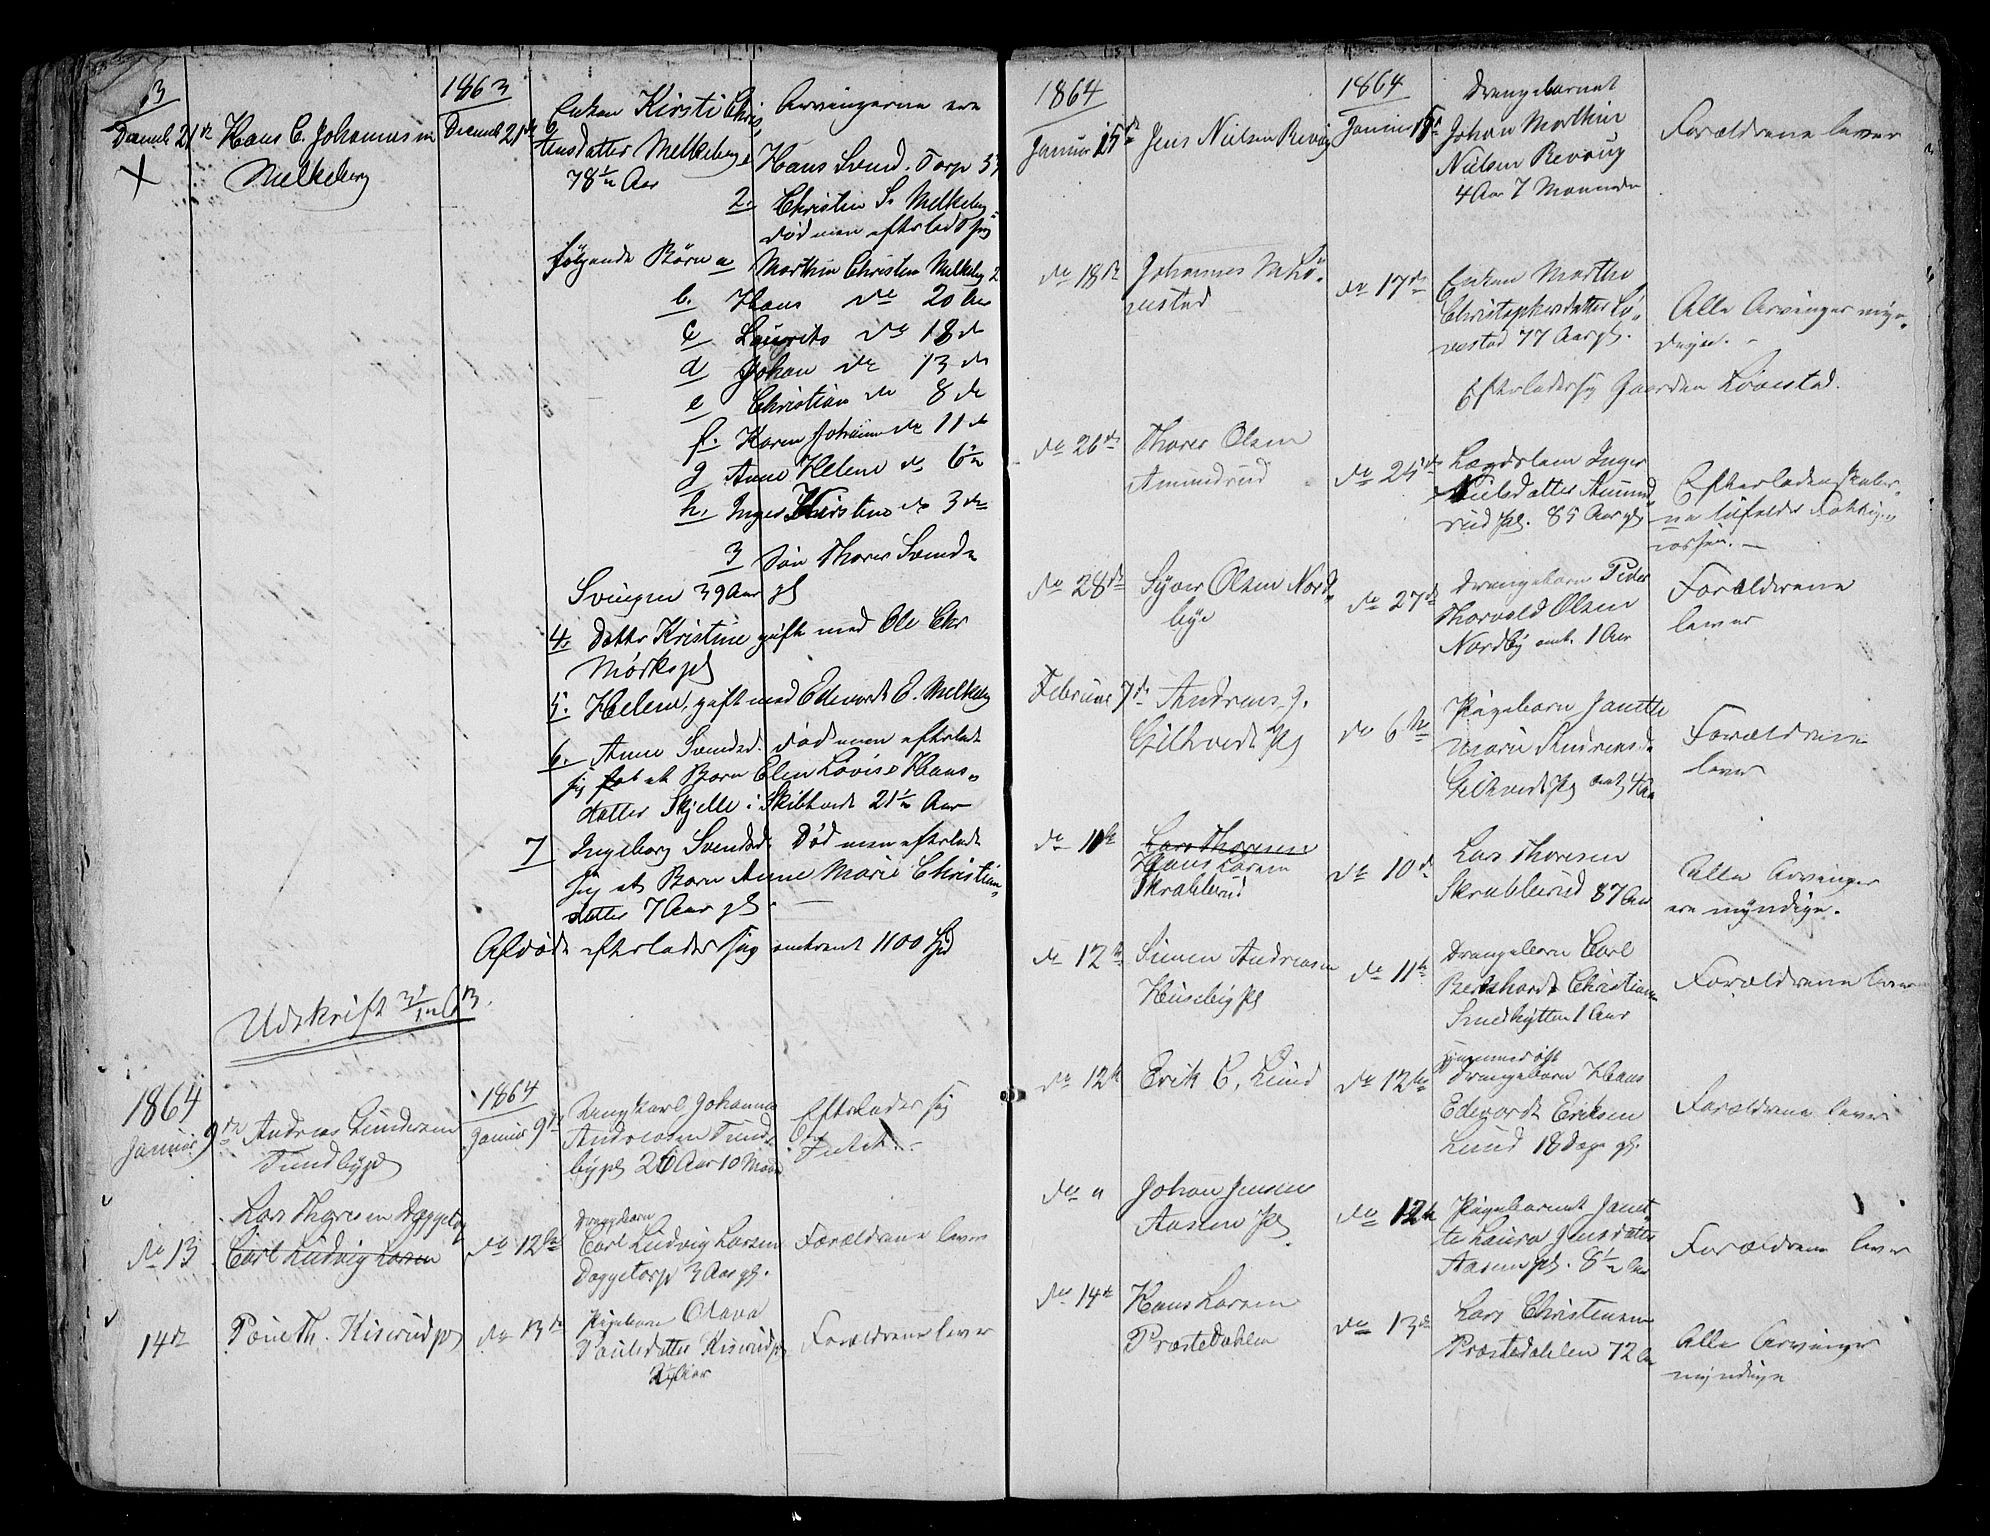 1863
Decemb 21de Hans C. Johannesen
Melkeberg
Decemb 21de
Enken Kirsti Chris
tensdatter Melkeberg
78½ Aar
Arvingerne ere
Hans Svend. Torp
2. Christen S. Melkeberg
død men efterladt sig
følgende Børn a Marthin Christen Melkeberg
b. Hans do 20 Aar
c Laurits do 18 do
d Johan do 13 do
e Christian do 8 do
f. Karen Johanne do 11 do
g Anne Helene do 6½
h. Inger Kirstine do 3 do
3 Søn Thorer Svends
Svingen 39 Aar gl
4. Datter Kristine gift med Ole Chr
Mørkspl
5. Helene, gift med Edevardt E. Melkeberg
6. Anne Svendsd. død men efterladt
sig et Barn Elen Lovise Hans-
datter Skjelle i Skibtvedt 21½ Aar
7 Ingeborg Svendsd. Død men efterladt
sig et Barn Anne Marie Christian-
datter 7 Aar gl.
Afdøde efterlader sig omtrent 1100 Spd
Udskrift 31/12 63.
1864
Januar 9de Andreas Gundersen
Tundbypl
1864
Januar 9de
Ungkarl Johannes
Andreasen Tund-
bypl 26 Aar 10 Maan
Efterlader sig
Intet.
do 13
Lars Thoresen Daggetorp
Carl Ludvig Larsen
do 12te
Drengebarn
Carl Ludvig Larsen
Daggetorp 3 Aar gl.
Forældrene lever
14de Poul Th. Kiserudpl
do 13de
Pigebarn Olava
Poulsdatter Kiserudpl
Aar
Forældrene lever
1864
Januar 15de Jens Nielsen Revoug
1864
Januar
Drengebarnet
Johan Marthin
Nielsen Revoug
4 Aar 7 Maaneder
Forældrene lever
do 18de Johannes M Lø-
vestad
do 17de
Enken Marthe
Christophersdatter Lø-
vestad 77 Aar gl.
Alle Arvinger myn-
dige. -
Efterlader sig Gaarden Løvestad.
do 26de Thorer Olsen
Amundrud
do 25de
Lægdslem Inger
Nielsdatter Amund
rud pl. 85 Aar gl
Efterladenskaber-
ne tilfalder Fattig-
væsen. -
do 28de Syver Olsen Nord-
bye
do 27de
Drengebarn Peder
Thorvald Olsen
Nordby omt. 1 Aar
Forældrene
lever
Februar 7de Andreas J.
Gilhvedt pl
do 6te
Pigebarn Janette
Marie Andreasd
Gilhvedt pl omt 4 Aar
Forældrene
lever
do 11te Lars Thoresen
Hans Larsen
Skrablerud
do 10de
Lars Thoresen
Skrablerud 87 Aar
Alle Arvinger
ere myndige.
do 12te Simen Andreasen
Huseby pl
do 11te
Drengebarn Carl
Bernhardt Christian
Smedhytten 1 Aar
Forældrene lever
do 12te Erik C. Lund
do 12te
hjemmedøbt
Drengebarn Hans
Edevardt Eriksen
Lund 18 Dage gl.
Forældrene lever
do " Johan Jensen
Aasen pl
do 12te
Pigebarnet Janet-
te Laura Jensdatter
Aasen pl. 8½ Aar
Forældrene lever
do 14de Hans Larsen
Præstedahlen
do 13de
Lars Christensen
Præstedahlen 72 Aar
Alle Arvinger
myndige